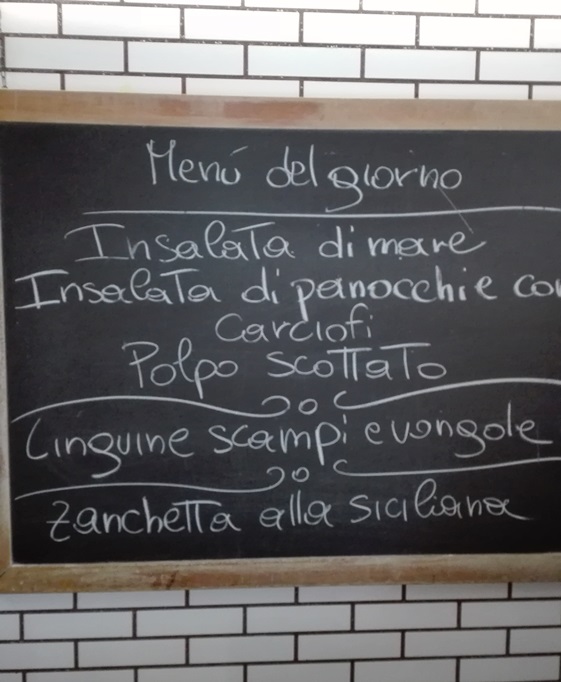 Menú del giorno
Insalata di mare
Insalata di panocchie con
Carciofi
Polpo scottato
Linguine scampi e vongole
Zanchetta alla siciliana